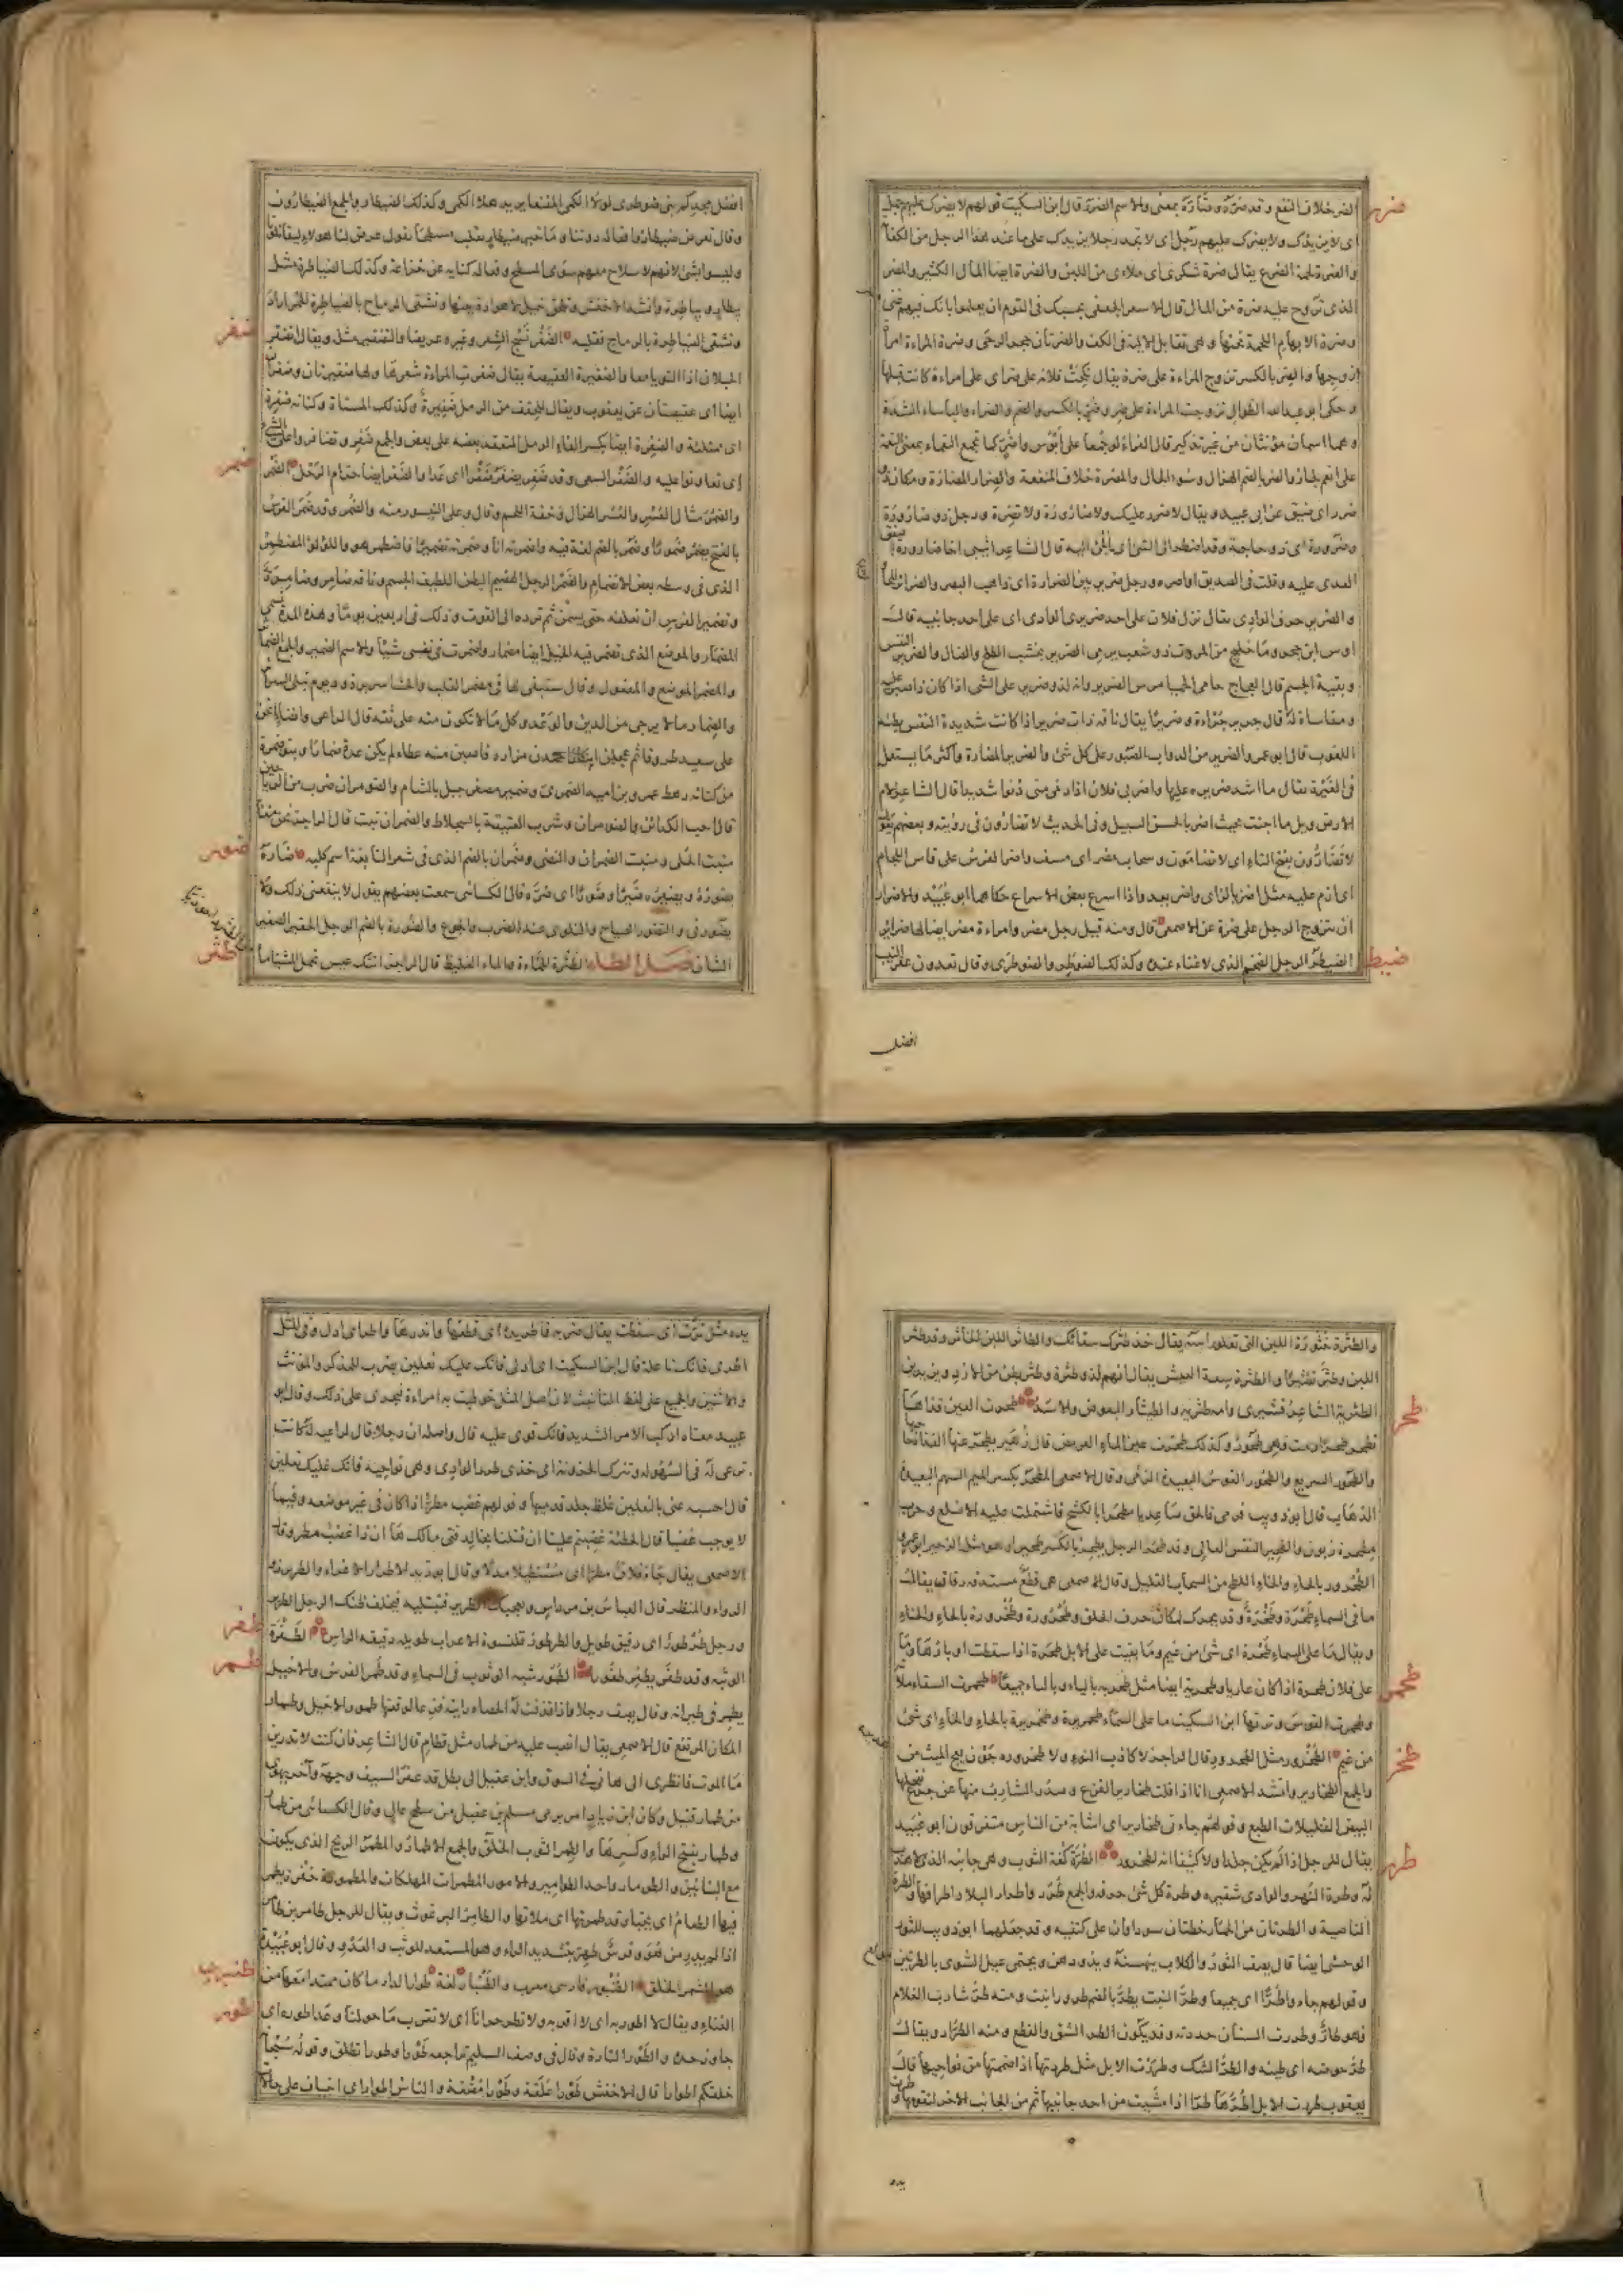 ضرر
الضر خلاف النفع وقد ضره وضاره بمعنى والاسم الضرر قال ابن السكيت قولهم لا يضرك عليه جمل
اى لا يزيدك ولا يضرك عليهم رجل اى لا تجد رجلا يزيدك على ما عند هذا الرجل من الكفاية
والضرة لحمة الضرع يقال ضرة شكرى اى ملاى من اللبن والضرة ايضا المال الكثير والمضر
الذى تروح عليه ضرة من المال قال الاسعر الجعفى بحسبك فى القوم ان يعلموا بانك فيهم غنى
وضرة الابهام اللحمة تحتها وهى تقابل الالية فى الكف والضرتان حجر الرحى وضرة المراة امراة
زوجها والضر بالكسر تزوج المراءة على ضرة يقال نكحت فلانة على ضر اى على امراءة كانت قبلها
وحكى ابو عبد الله الطوال تزوجت المراءة على ضر وضر بالكسر والضم والضراء والباساء الشدة
وهما اسمان مؤنثان من غير تذكير قال الفراء لو جمعا على ابؤس واضر كما تجمع النعماء بمعنى النعمة
على انعم لجاز والضر بالضم الهزال وسوء الحال والمضرة خلاف المنفعة والضرار المضارة ومكان ذو
ضرر اى ضيق عن ابى عبيد ويقال لا ضرر عليك ولا ضارورة ولا تضرة ورجل ذو ضارورة
وضرورة اى ذو حاجة وقد اضطر الى الشئ اى الجئ اليه قال الشاعر اثيبى اخا ضارورة
العدى عليه وقلت فى الصديق اواصره ورجل ضرير بين الضرارة اى ذاهب البصر والضرائر
والضرير حرف الوادى يقال نزل فلان على احد ضريرى الوادى اى على احد جانبيه قال
وبقية الجسم قال العجاج حامى الحميا مرس الضرير وانه لذو ضرير على الشئ اذا كان ذا صبر عليه
ومقاساة له قال جرير جراءة وضريرا يقال ناقة ذات ضرير اذا كانت شديدة النفس بطيئة
اللغوب قال ابو عمرو الضرير من الدواب الصبور على كل شئ والضرير المضارة واكثر ما يستعمل
فى الغيرة يقال ما اشد ضريره عليها واضر بى فلان اذا دنى منى دنوا شديدا قال الشاعر لام
الارض ويل ما اجنت بحيث اضر بالحسن السبيل وفى الحديث لا تضارون فى رؤيته وبعضهم يقول
لا تضارون بفتح التاء اى لا تضامون وسحاب مضر اى مسف واضر الفرس على فاس اللجام
اى ازم عليه مثل اضز بالزاى واضر يعدو اذا اسرع بعض الاسراع حكاهما ابو عبيد والاضرار
ان يتزوج الرجل على ضرة عن الاصمعى قال ومنه قيل رجل مضر وامراءة مضر ايضا لها ضرائر
ضيطر
الضيطر الرجل الضخم الذى لا غناء عنده وكذلك الضوطر والضوطرى وقال تعدون عقر النيب
افضل
افضل مجدكم بنى ضوطرى لولا الكمى المقنعا يريد هلا الكمى وكذلك الضيطار والجمع الضيطارون
وليسوا بشئ لانهم لا سلاح معهم سوى المسطح وفعالة كناية عن خزاعة وكذلك الضياطرة مثل
بيطار وبياطرة وانشد الاخفش وتلحق خيل لا هوادة بينها وتشقى الرماح بالضياطرة الحمر اراد
ضفر
وتشقى الضياطرة بالرماح فقلبه الضفر نسج الشعر وغيره عريضا والتضفير مثله ويقال انضفر
الحبلان اذا التويا معا والضفيرة العقيصة يقال ضفرت المراءة شعرها ولها ضفيرتان وضفران
ايضا اى عقيصتان عن يعقوب ويقال للحقف من الرمل ضفيرة وكذلك المسناة وكنانة ضفرة
اى ممتلئة والضفرة ايضا بكسر الفاء الرمل المتعقد بعضه على بعض والجمع ضفر وتضافروا على الشئ
ضمر
اى تعاونوا عليه والضفر السعى وقد ضفر يضفر ضفرا اى عدا والضفر ايضا حزام الرحل الضمر
والضمر مثال العسر والعسر الهزال وخفة اللحم
بالفتح يضمر ضمورا وضمر بالضم لغة فيه واضمرته انا وضمرته تضميرا فاضطمر هو واللؤلؤ المضطمر
الذى فى وسطه بعض الانضمام والضمر الرجل الهضيم البطن اللطيف الجسم وناقة ضامر وضامرة
وتضمير الفرس ان تعلفه حتى يسمن ثم ترده الى القوت وذلك فى اربعين يوما وهذه المدة تسمى
المضمار والموضع الذى تضمر فيه الخيل ايضا مضمار واضمرت فى نفسى شيئا والاسم الضمير والجمع الضمائر
والمضمر الموضع والمفعول وقال ستبقى لها فى مضمر القلب والحشا سريرة ود يوم تبلى السرائر
والضمار ما لا يرجى من الدين والوعد وكل ما لا تكون منه على ثقة قال الراعى
من كنانة رهط عمرو بن امية الضمرى وضمير مصغر جبل بالشام والضومران ضرب من الرياحين
ضور
منبت الحلى ومنبت الضمران والنصى وضمران بالضم الذى فى شعر النابغة اسم كلبة ضاره
يضوره ويضيره ضيرا وضورا اى ضره قال الكسائى سمعت بعضهم يقول لا ينفعنى ذلك ولا
يضورنى والتضور الصياح والتلوى عند الضرب والجوع والضورة بالضم الرجل الحقير الصغير
طثر
الشان فصل الطاء الطثرة الحماءة والماء الغليظ قال الراجز اتتك عيس تحمل المشيا ما
والطثرة خثورة اللبن التى تعلو راسه يقال خذ طثرة سقائك والطاثر اللبن الخاثر وقد طثر
اللبن وطثر تطثيرا والطثرة سعة العيش يقال انهم لذو طثرة وطثرة بطن من الازد ويزيد بن
طحر
الطثرية الشاعر قشيرى وامه طثرية والطيثار البعوض والاسد طحرت العين قذاها
تطحر طحرا رمت فهى طحور وكذلك طحرت عين الماء العرمض قال زهير
والطحور السريع والطحور القوس البعيدة الرمى وقال الاصمعى المطحر بكسر الميم السهم البعيد
الذهاب قال ابو ذويب فرمى فالحق صاعديا مطحرا بالكشح فاشتملت عليه الاضلع وحرب
مطحرة زبون والطحير النفس العالى وقد طحر الرجل يطحر بالكسر طحيرا وهو مثل الزحير
الطحرور بالحاء والخاء اللطخ من السحاب القليل وقال الاصمعى هى قطع مستدقة رقاق يقال
ما فى السماء طحرة وطخرة وقد يحرك لمكان حرف الحلق وطحرورة وطخرورة بالحاء والخاء
ويقال ما على السماء طحرة اى شئ من غيم وما بقيت على الابل طحرة اذا سقطت اوبارها وما
طحمر
على فلان طحرة اذا كان عاريا وطحرية ايضا مثل طحربة بالياء وبالباء جميعا طحمرت السقاء ملاته
وطحمرت القوس وترتها ابن السكيت ما على السماء طحمريرة وطخمريرة بالحاء والخاء اى شئ
طخر
من غيم الطخرور مثل الطحرور قال الراجز لا كاذب النوء ولا طخروره جون يعج الميث من
والجمع الطخارير وانشد الاصمعى انا اذا قلت طخارير القزع وصدر الشارب منها عن جرع
البيض القليلات الطبع وقولهم جاءنى طخارير اى اشابة من الناس متفرقون ابو عبيد
طرر
يقال للرجل اذا لم يكن جلدا ولا كثيفا انه لطخرور الطرة كفة الثوب وهى جانبه الذى لا هدب
له وطرة النهر والوادى شفيره وطرة كل شئ حرفه والجمع طرر واطرار البلاد اطرافها والطرة
الناصية والطرتان من الحمار خطتان سوداوان على كتفيه وقد جعلهما ابو ذويب للثور
الوحشى ايضا قال يصف الثور والكلاب ينهشنه ويذودهن ويحتمى عبل الشوى بالطرتين
وقولهم جاءوا طرا اى جميعا وطر النبت يطر بالضم طرورا نبت ومنه طر شارب الغلام
فهو طار وطررت السنان حددته وقد يكون الطر الشق والقطع ومنه الطرار ويقال
طر حوضه اى طينه والطر الشل وطررت الابل مثل طردتها اذا ضممتها من نواحيها قال
يعقوب طررت الابل اطرها طرا اذا مشيت من احد جانبيها ثم من الجانب الاخر لتقومها وطرت
يده
يده مثل ترت اى سقطت يقال ضربه فاطر يده اى قطعها واندرها واطر اى ادل وفى المثل
اطرى فانك ناعلة قال ابن السكيت اى ادلى فانك عليك نعلين يضرب للمذكر والمؤنث
والاثنين والجميع على لفظ التانيث لان اصل المثل خوطبت به امراءة فيجرى على ذلك وقال ابو
عبيد معناه اركب الامر الشديد فانك قوى عليه قال واصله ان رجلا قال لراعية له كانت
ترعى له فى السهولة وتترك الحزونة اى خذى طرر الوادى وهى نواحيه فانك عليك نعلين
قال احسبه عنى بالنعلين غلظ جلد قدميها وقولهم غضب مطر اذا كان فى غير موضعه وفيما
لا يوجب غضبا قال الحطيئة غضبتم علينا ان قتلنا بخالد بنى مالك ها ان ذا غضب مطر وقال
الاصمعى يقال جاء فلان مطرا اى مستطيلا مدلا وقال ابو زيد الاطرار الاغراء والطرير ذو
الرواء والمنظر قال العباس بن مرداس ويعجبك الطرير فتبتليه فيخلف ظنك الرجل الطرير
طفر
ورجل طرطور اى دقيق طويل والطرطور قلنسوة الاعراب طويلة دقيقة الراس الطفرة
طمر
الوثبة وقد طفر يطفر طفورا الطمور شبه الوثوب فى السماء وقد طمر الفرس والاخيل
يطمر فى طيرانه وقال يصف رجلا واذا قذفت له الحصاة رايته فزعا لوقعتها طمور الاخيل وطمار
المكان المرتفع قال الاصمعى يقال انصب عليه من طمار مثل قطام قال الشاعر فان كنت لا تدرين
ما الموت فانظرى الى هانئ فى السوق وابن عقيل الى بطل قد عقر السيف وجهه وآخر يهوى
من طمار قتيل وكان ابن زياد امر برمى مسلم بن عقيل من سطح عال وقال الكسائى من طمار
وطمار بفتح الراء وكسرها والطمر الثوب الخلق والجمع الاطمار والمطمر الزيج الذى يكون
مع البنائين والطومار واحد الطوامير والامور المطمرات المهلكات والمطمورة حفرة يطمر
فيها الطعام اى يخبا وقد طمرتها اى ملاتها والطامر البرغوث ويقال للرجل طامر بن طامر
اذا لم يدر من هو وفرس طمر بتشديد الراء وهو المستعد للوثب والعدو وقال ابو عبيدة
طنبر
هو المشمر الخلق الطنبور فارسى معرب والطنبار لغة طوار الدار ما كان ممتدا معها من
طور
الفناء ويقال لا اطور به اى لا اقربه ولا تطر حرانا اى لا تقرب ما حولنا وعدا طوره اى
جاوز حده والطور التارة وقال فى وصف السليم تراجعه طورا وطورا تطلق وقوله سبحانه
خلقكم اطوارا قال الاخفش طورا علقة وطورا مضغة والناس اطوار اى اخياف على حالات